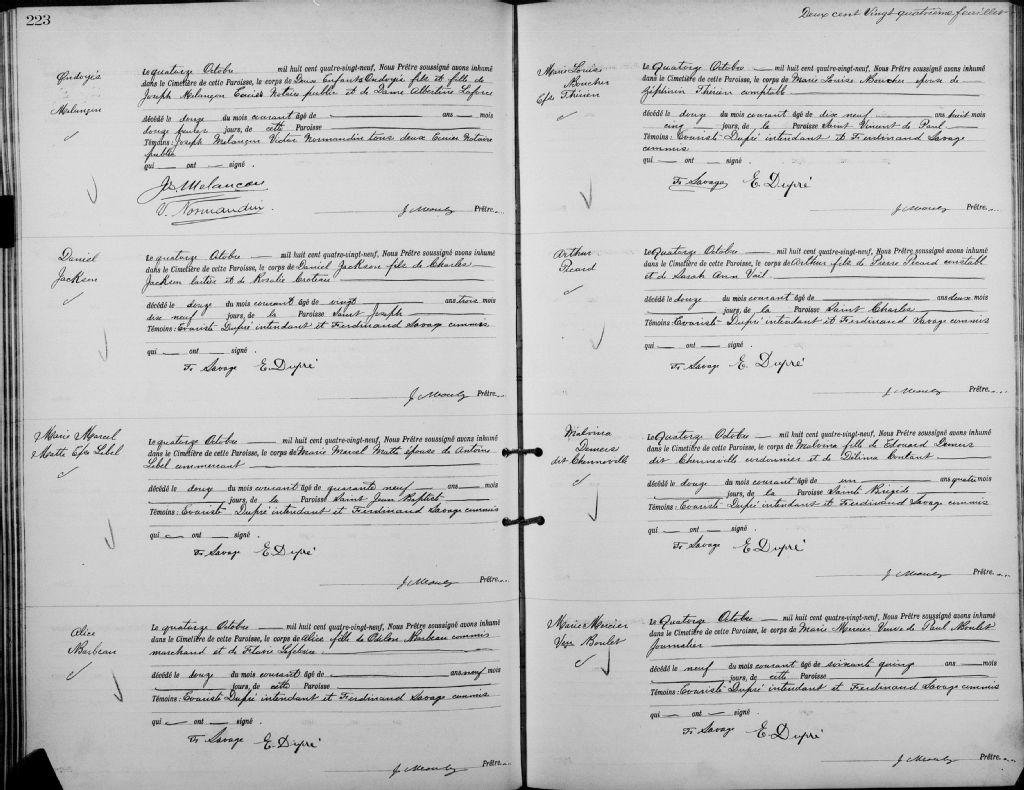 223
Ondoyés
Melançon
Le quatorze Octobre — mil huit cent quatre-vingt-neuf, Nous Prêtre soussigné avons inhumé
dans le Cimetière de cette Paroisse, le corps de Deux Enfants Ondoyés fils et fille de
Joseph Melançon Ecuier Notaire public et de Dame Albertine Laforce
décédé le douze du mois courant âgé de — ans — mois
jours, de cette Paroisse
Témoins: Joseph Melançon Victor Normandin tous deux Ecuier Notaire
public
qui — ont — signé .
Js Melançon
V. Normandin
Prêtre.
Daniel
Jackson
Le quatorze Octobre — mil huit cent quatre-vingt-neuf, Nous Prêtre soussigné avons inhumé
dans le Cimetière de cette Paroisse, le corps de Daniel Jackson fils de Charles
Jackson laitier et de Rosalie
décédé le douze du mois courant âgé de vingt ans trois mois
dix neuf jours, de la Paroisse Saint Joseph
Témoins: Evariste Dupré intendant et Ferdinand Savage commis
qui — ont — signé .
Fr Savage E. Dupré
Prêtre.
Marie Marcel
Matte Epse Lebel
Le quatorze Octobre — mil huit cent quatre-vingt-neuf, Nous Prêtre soussigné avons inhumé
dans le Cimetière de cette Paroisse, le corps de Marie Marcel Matte épouse de Antoine
Lebel commercant
décédé le douze du mois courant âgé de quarante neuf ans — mois
jours, de la Paroisse Saint Jean Baptiste
Témoins: Evariste Dupré intendant et Ferdinand Savage commis
qui — ont — signé .
Fr Savage E. Dupré
Prêtre.
Alice
Barbeau
Le quatorze Octobre — mil huit cent quatre-vingt-neuf, Nous Prêtre soussigné avons inhumé
dans le Cimetière de cette Paroisse, le corps de Alice fille de Odilon Barbeau commis
marchand et de Flavie Lefebvre
décédé le douze du mois courant âgé de — ans neuf mois
jours, de cette Paroisse
Témoins: Evariste Dupré intendant et Ferdinand Savage commis
qui — ont — signé .
Fr Savage E. Dupré
Prêtre.
Deux cent Vingt quatrième feuillet
Marie Louise
Boucher
Epse Thérien
Le Quatorze Octobre — mil huit cent quatre-vingt-neuf, Nous Prêtre soussigné avons inhumé
dans le Cimetière de cette Paroisse, le corps de Marie Louise Boucher épouse de
Zéphirin Thérien comptable
décédé le douze du mois courant âgé de dix neuf ans huit mois
cinq jours, de la Paroisse Saint Vincent de Paul
Témoins: Evariste Dupré intendant et Ferdinand Savage
commis
qui — ont — signé .
Fr Savage E. Dupré
Prêtre.
Arthur
Picard
Le Quatorze Octobre — mil huit cent quatre-vingt-neuf, Nous Prêtre soussigné avons inhumé
dans le Cimetière de cette Paroisse, le corps de Arthur fils de Pierre Picard
et de Sarah Ann Vail
décédé le douze du mois courant âgé de — ans deux mois
jours, de la Paroisse Saint Charles
Témoins: Evariste Dupré intendant et Ferdinand Savage commis
qui — ont — signé .
Fr Savage E. Dupré
Prêtre.
Malvina
Demers
dit Chenneville
Le Quatorze Octobre — mil huit cent quatre-vingt-neuf, Nous Prêtre soussigné avons inhumé
dans le Cimetière de cette Paroisse, le corps de Malvina fille de Edouard Demers
dit Chenneville cordonnier et de Contant
décédé le douze du mois courant âgé de un ans quatre mois
jours, de la Paroisse Sainte Brigide
Témoins: Evariste Dupré intendant et Ferdinand Savage commis
qui — ont — signé .
Fr Savage E. Dupré
Prêtre.
Marie Mercier
Veuve Boulet
Le Quatorze Octobre — mil huit cent quatre-vingt-neuf, Nous Prêtre soussigné avons inhumé
dans le Cimetière de cette Paroisse, le corps de Marie Mercier Veuve de Paul Boulet
Journalier
décédé le neuf du mois courant âgé de soixante quinze ans — mois
jours, de cette Paroisse
Témoins: Evariste Dupré intendant et Ferdinand Savage commis
qui — ont — signé .
Fr Savage E. Dupré
Prêtre.